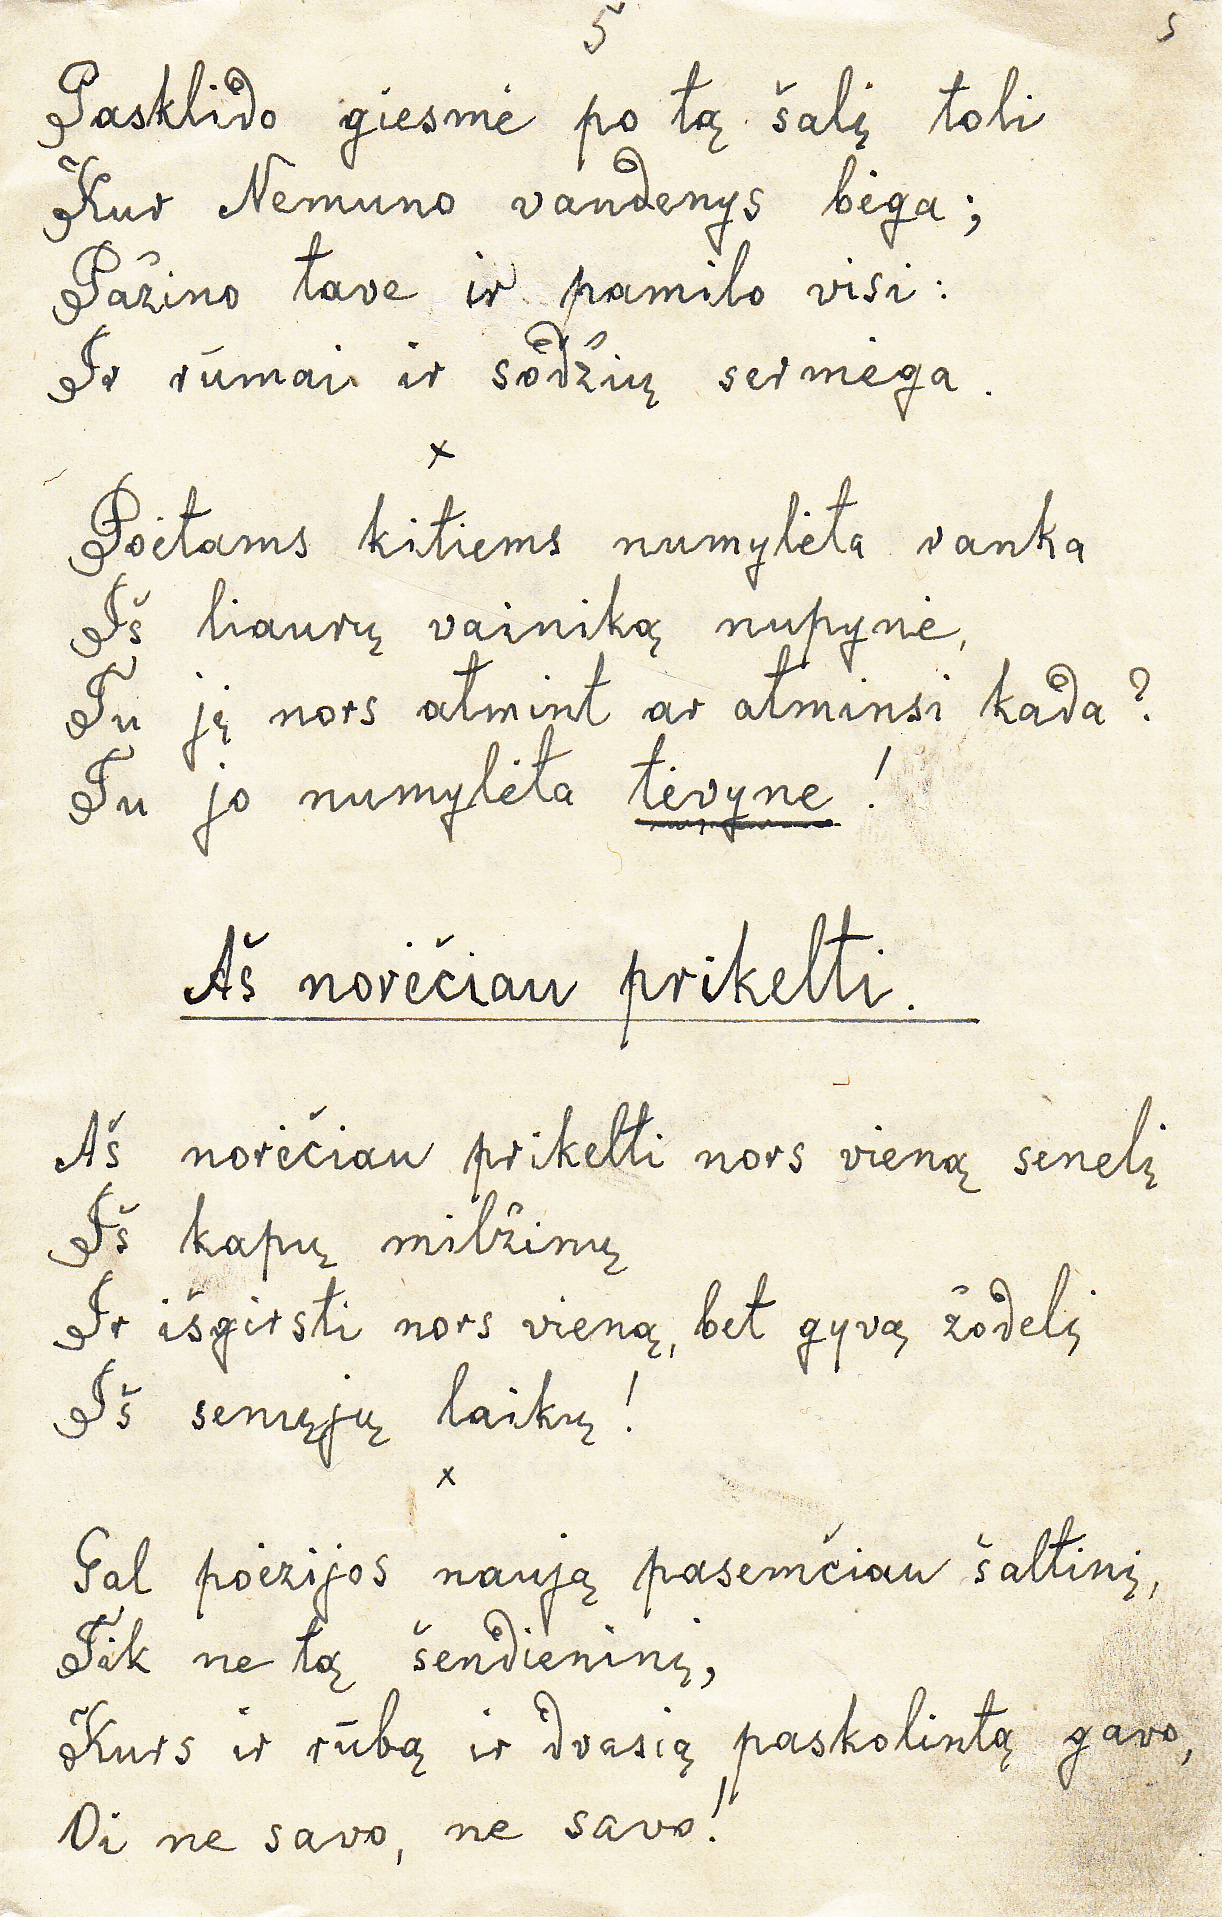 5 5
Pasklido giesmė po tą šalį toli
Kur Nemuno vandenys bėga;
Pažino tave ir pamilo visi:
Ir rūmai ir sodžių sermėga.
x
Poėtams kitiems numylėta ranka
Iš liaurų vainiką nupynė,
Tu jį nors atmint ar atminsi kada?
Tu jo numylėta tėvyne!
Aš norėčiau prikelti.
Aš norėčiau prikelti nors vieną senelį
Iš kapų milžinų
Ir išgirsti nors vieną, bet gyvą žodelį
Iš senųjų laikų!
x
Gal poėzijos naują pasemčiau šaltinį,
Tik ne tą šendieninį,
Kurs ir rūbą ir dvasią paskolintą gavo,
Oi ne savo, ne savo!